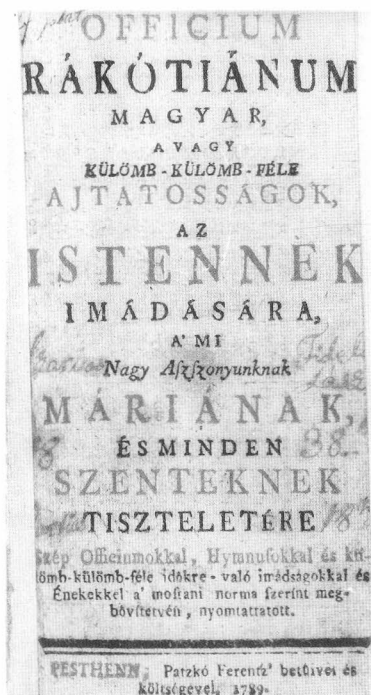 OFFICIUM
RÁKÓTIÁNUM
MAGYAR,
AVAGY
KÜLÖMB-KÜLÖMB-FÉLE
AJTATOSSÁGOK,
AZ
ISTENNEK
IMÁDÁSÁRA,
A' MI
Nagy Aſzſzonyunknak
MÁRIÁNAK,
ÉS MINDEN
38.
SZENTEKNEK
TISZTELETÉRE
Szép Officiumokkal, Hymnuſokkal és kü-
lömb-külömb-féle időkre-való imádságokkal és
Énekekkel a' moſtani norma ſzerínt meg-
bővítetvén, nyomtattatott.
PESTHENN, Patzkó Ferentz' betűivel és
költségével, 1789.